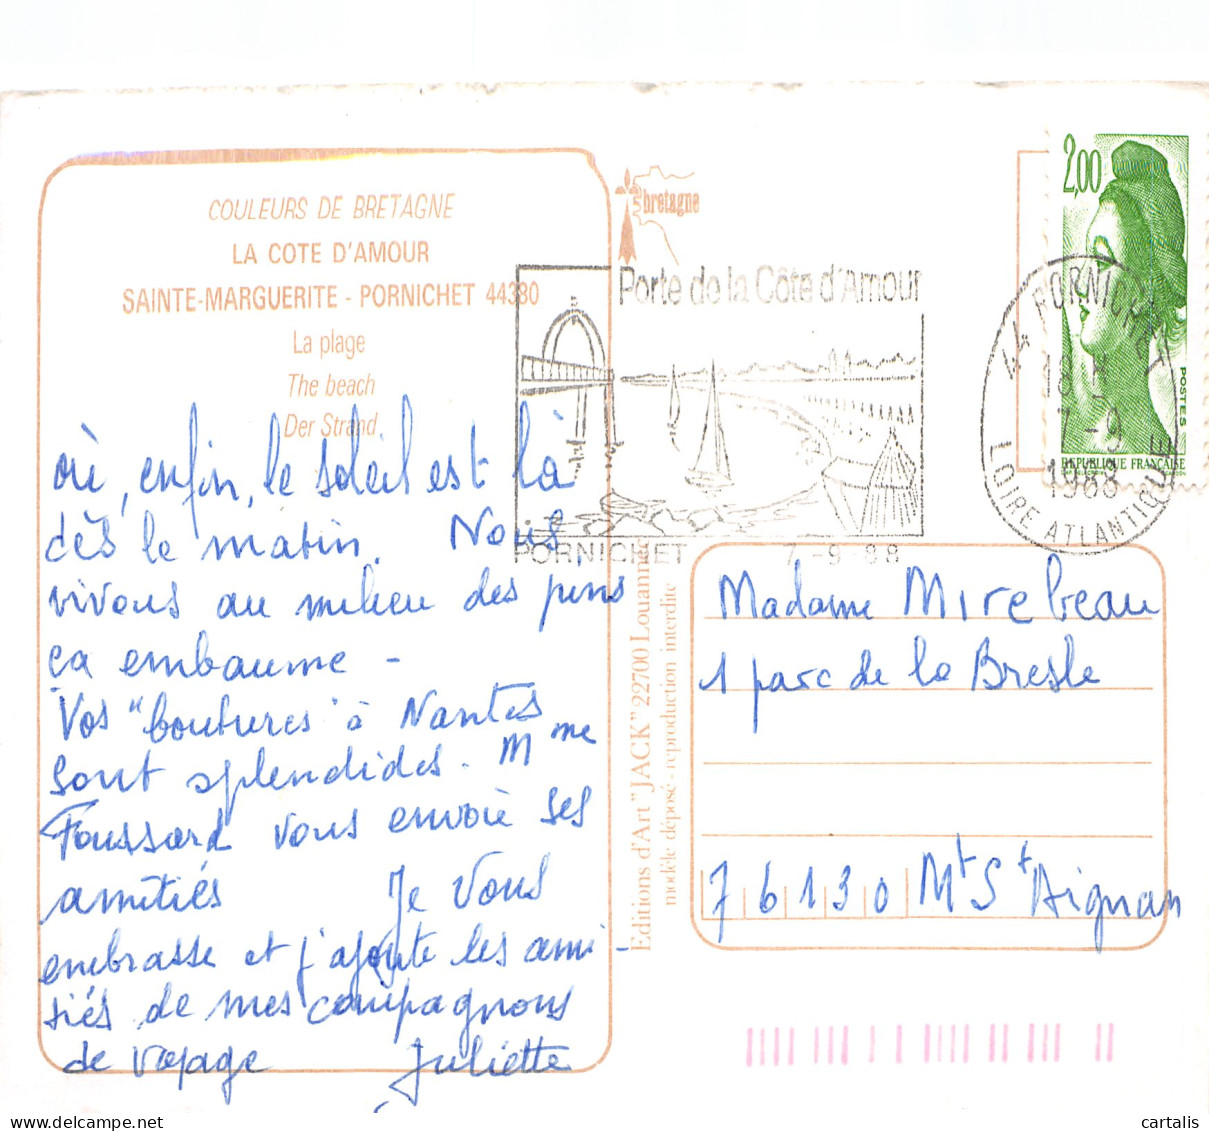 COULEURS DE BRETAGNE
LA COTE D'AMOUR
SAINTE-MARGUERITE - PORNICHET 44380
La plage
The beach
Der Strand
où, enfin, le soleil est là
dès le matin. Nous
vivons au milieu des pins
ça embaume -
Vos "boutures" à Nantes
sont splendides. Mme
Foussard vous envoie ses
amitiés Je vous
embrasse et j'ajoute les ami-
tiés de mes compagnons
de voyage Juliette
bretagne
Porte de la Côte d'Amour
PORNICHET 7-9-88
2,00
POSTES
REPUBLIQUE FRANÇAISE
44 PORNICHET
18 H
7-9
1988
LOIRE ATLANTIQUE
Editions d'Art "JACK" 22700 Louannec
modèle déposé - reproduction interdite
Madame Mirebeau
1 parc de la Bresle
76130 Mt St Aignan
cartalis